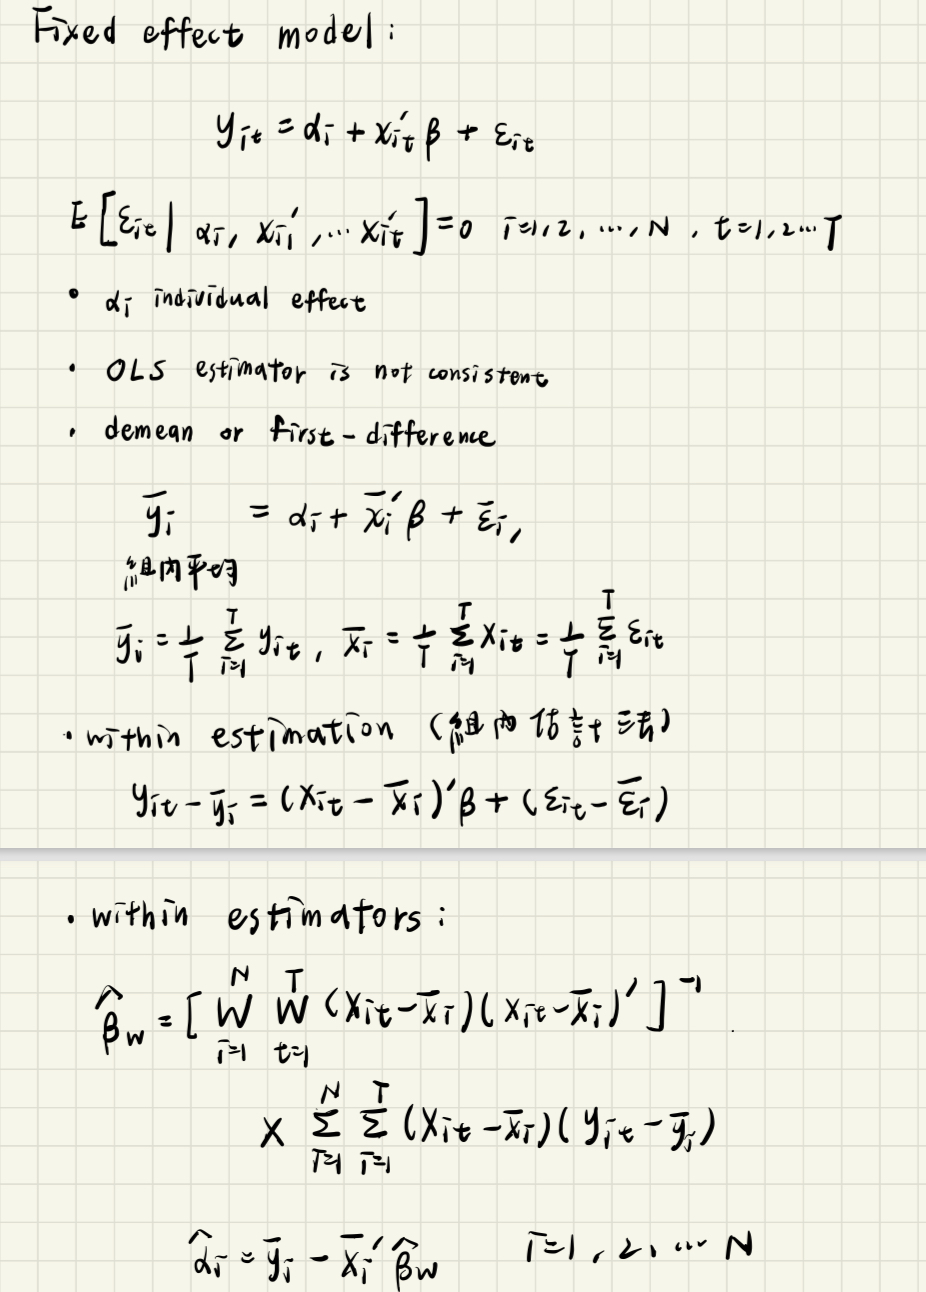 Fixed effect model:
y_it = α_i + x_it′ β + ε_it
E[ε_it | α_i, x_i1′, ... x_it′] = 0 i=1,2,...,N, t=1,2...T
• α_i individual effect
• OLS estimator is not consistent
• demean or first-difference
ȳ_i = α_i + x̄_i′ β + ε̄_i,
組內平均
ȳ_i = 1/T Σ_{i=1}^{T} y_it, x̄_i = 1/T Σ_{i=1}^{T} x_it = 1/T Σ_{i=1}^{T} ε_it
• within estimation (組內估計法)
y_it − ȳ_i = (x_it − x̄_i)′β + (ε_it − ε̄_i)
• within estimators:
β̂_W = [W_{i=1}^{N} W_{t=1}^{T} (x_it − x̄_i)(x_it − x̄_i)′]^{−1}
× Σ_{i=1}^{N} Σ_{i=1}^{T} (x_it − x̄_i)(y_it − ȳ_i)
α̂_i = ȳ_i − x̄_i′ β̂_W i=1,2,... N